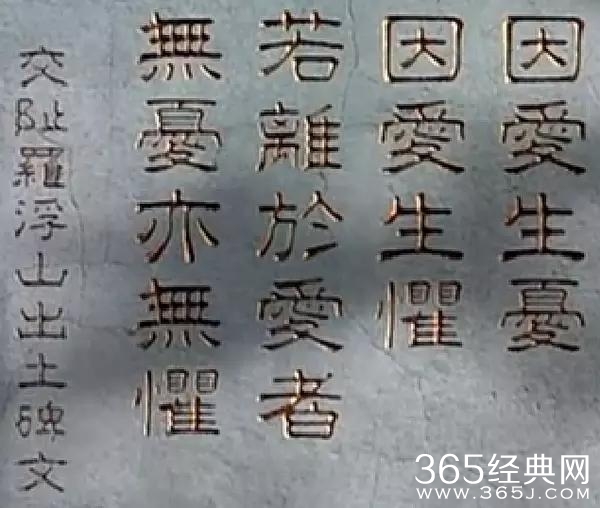 因愛生憂
因愛生懼
若離於愛者
無憂亦無懼
交阯羅浮山出土碑文
365经典网
www.365J.com